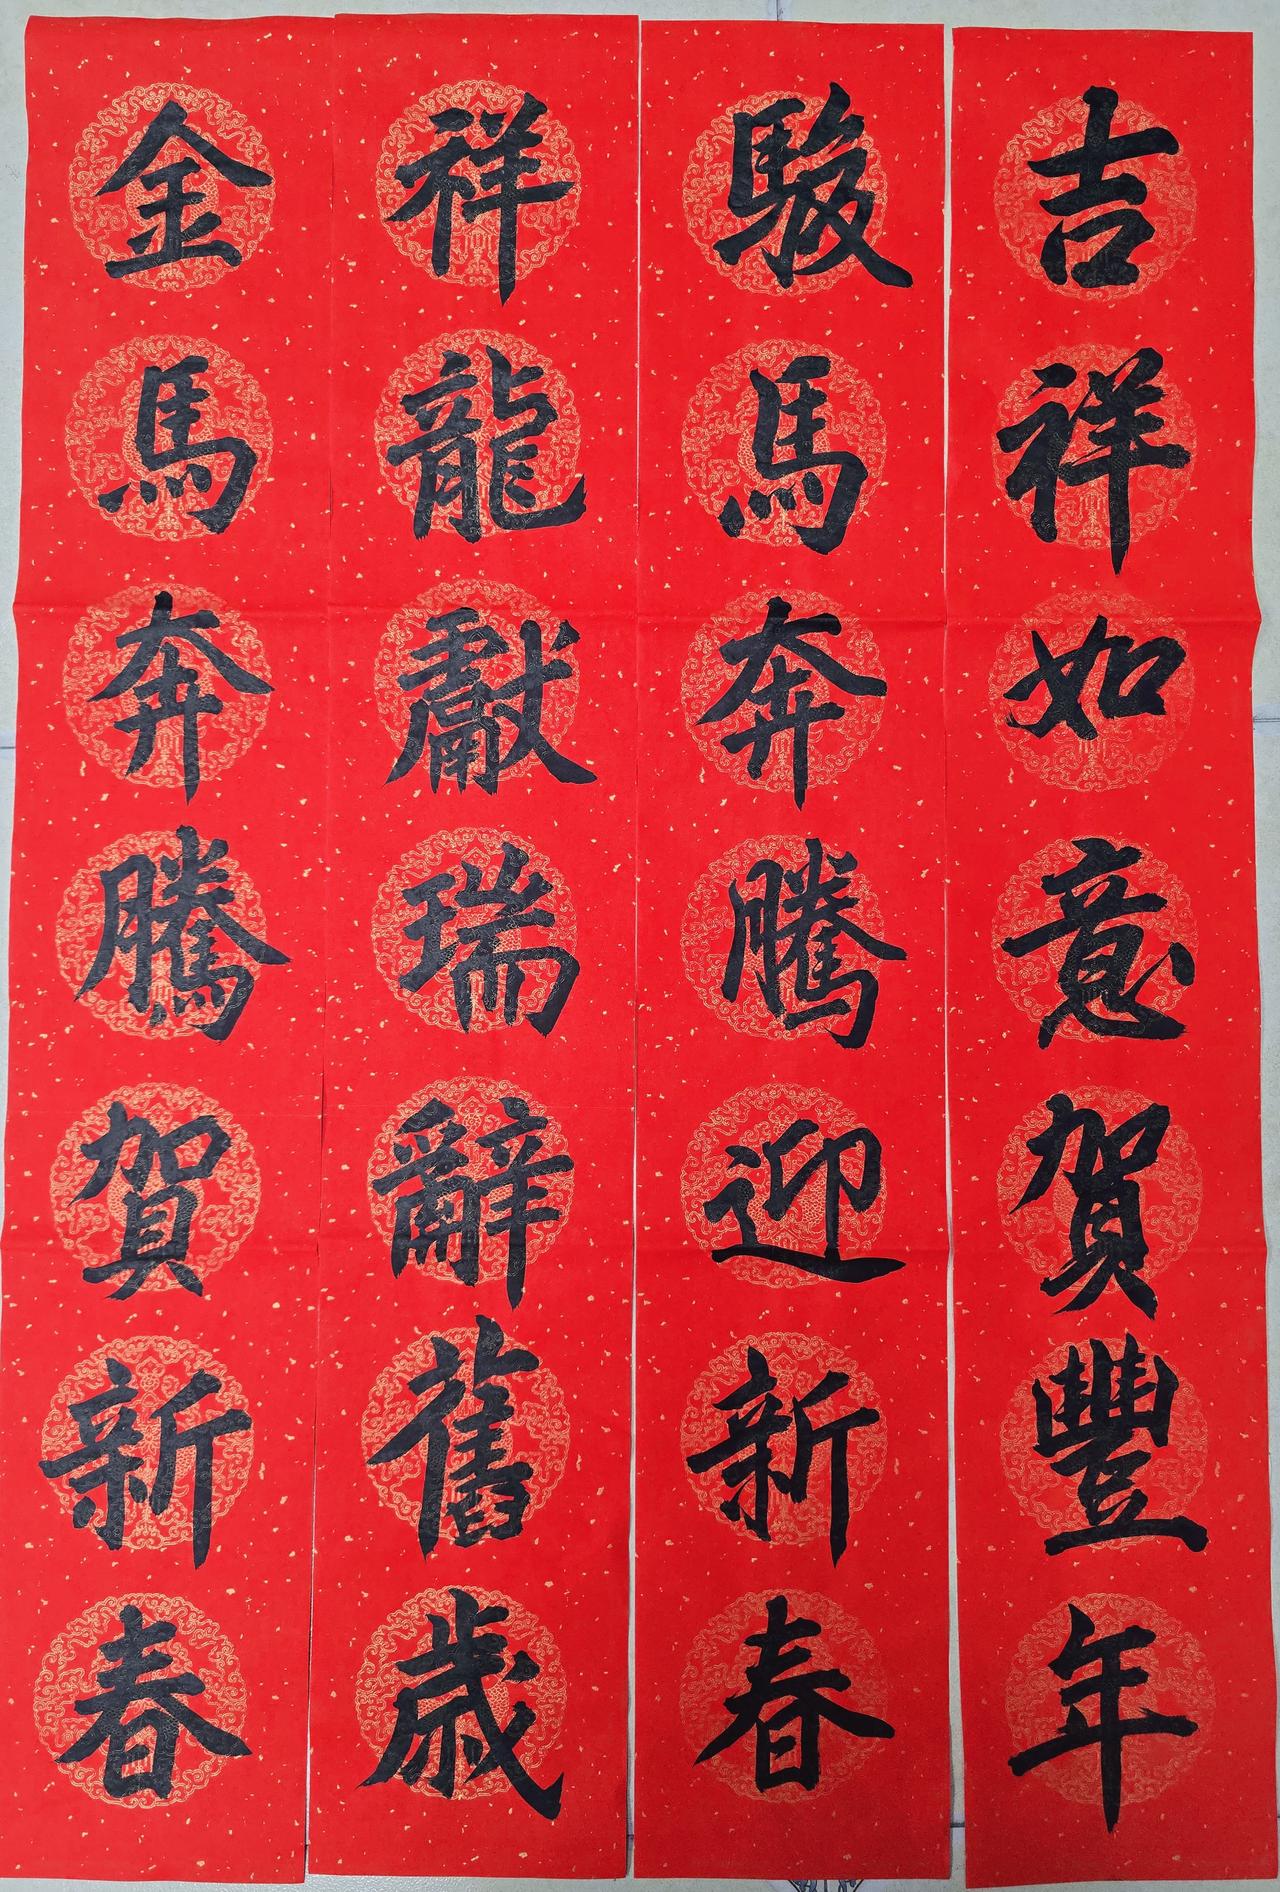 吉祥如意賀豐年
駿馬奔騰迎新春
祥龍獻瑞辭舊歲
金馬奔騰賀新春